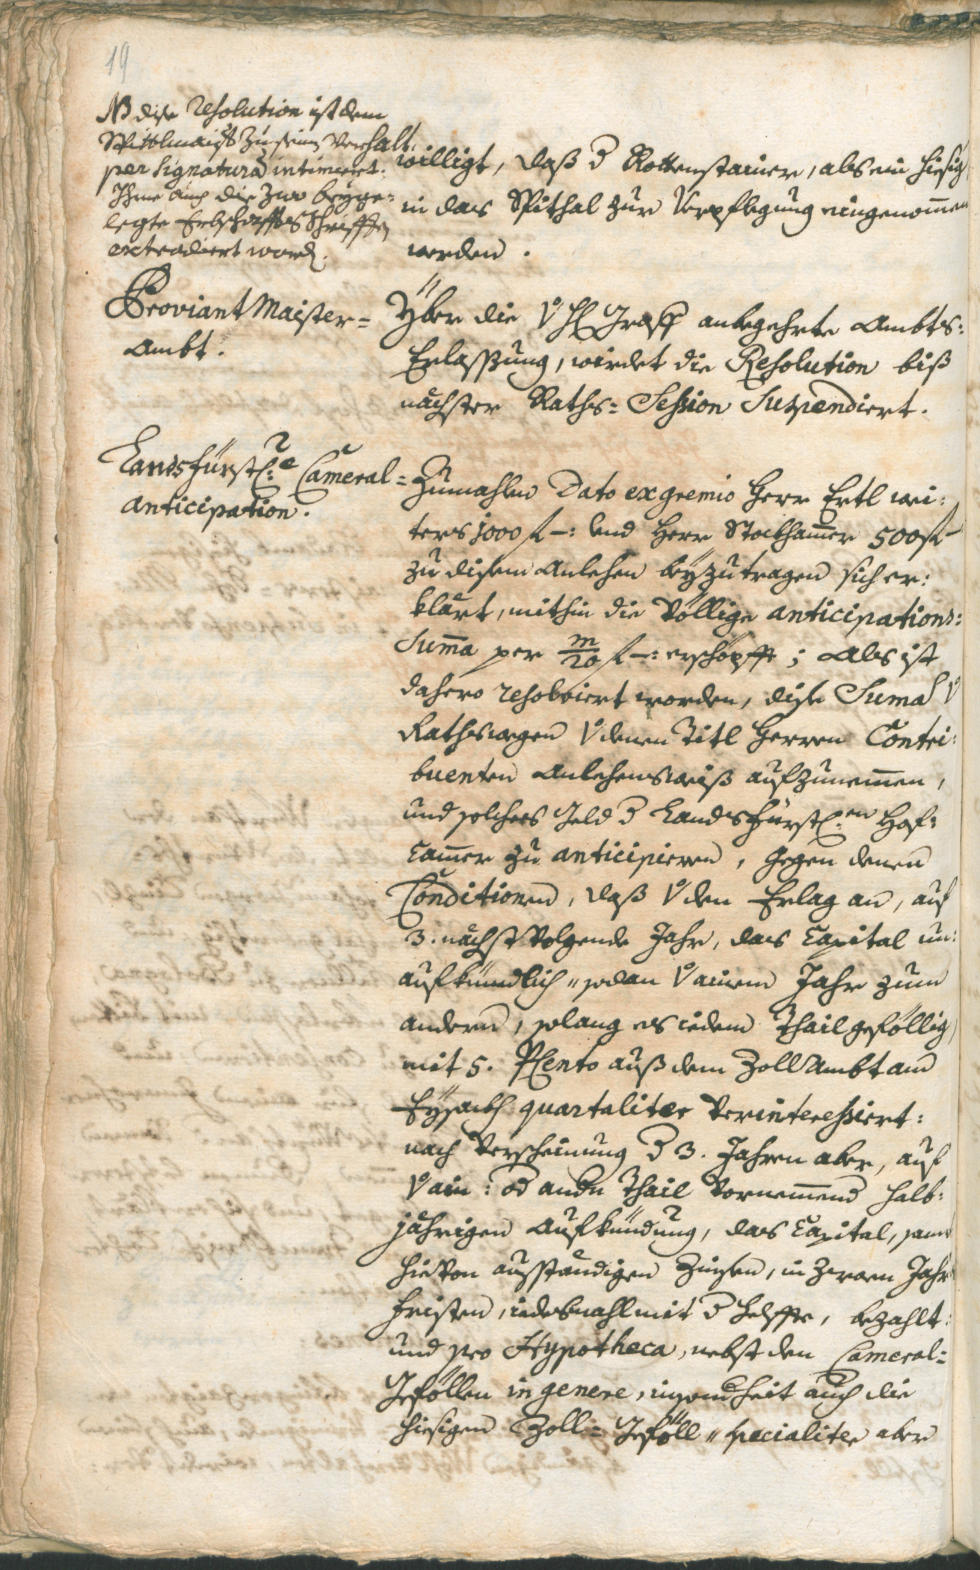 19
NB dise Resolution ist dem
Spittlmaister zu seinem Verhalt
per Signaturã intimiert.
Ihme auch die zwo beyge-
legte Erbschaffts Schrifften
extradiert word.
willigt, daß d Rottensteiner, als ein hiesig
in das Spithal zur Verpflegung eingenom̄en
werden.
Proviant Maister-
Ambt.
Über die v H Graff anbegehrte Ambts:
Erlassung, wirdet die Resolution biß
nächster Raths= Session Suspendiert.
Landsfürstl:e Cameral=
anticipation.
Zumahlen Dato ex gremio Herr Ertl wei:
ters 1000 f –: und Herr Stockham̄er 500 f –
zu disem Anlehen beyzutragen sich er:
klärt, mithin die Völlige anticipations:
Sum̄a per m/20 f –: erschöpfft; Als ist
dahero resolviert worden, dise Suma v
Rathswegen v denen Titl Herren Contri:
buenten Anlehensweiß aufzunem̄en,
und solches Geld d Landsfürstl:en Hof=
Cam̄er zu anticipieren, gegen denen
Conditionen, daß v den Erlag an, auf
3. nächst Volgende Jahr, das Capital un:
aufkündlich, sodan v ainem Jahr zum
andern, solang es iedem Thail geföllig,
mit 5. PCento auß dem Zoll Ambt am
Eysackh quartaliter Verinteressiert:
nach Verscheinung d 3. Jahren aber, auf
v ain: od andn Thail Vornem̄end halb:
jährigen Aufkündung, das Capital, samt
hievon ausständigen Zinsen, in zwaen Jahrs
fristen, iedesmahl mit d Helffte, bezahlt:
und pro Hypotheca, nebst den Cameral=
Geföllen in genere, insondheit auch die
hiesigen Zoll= Geföll, specialiter aber